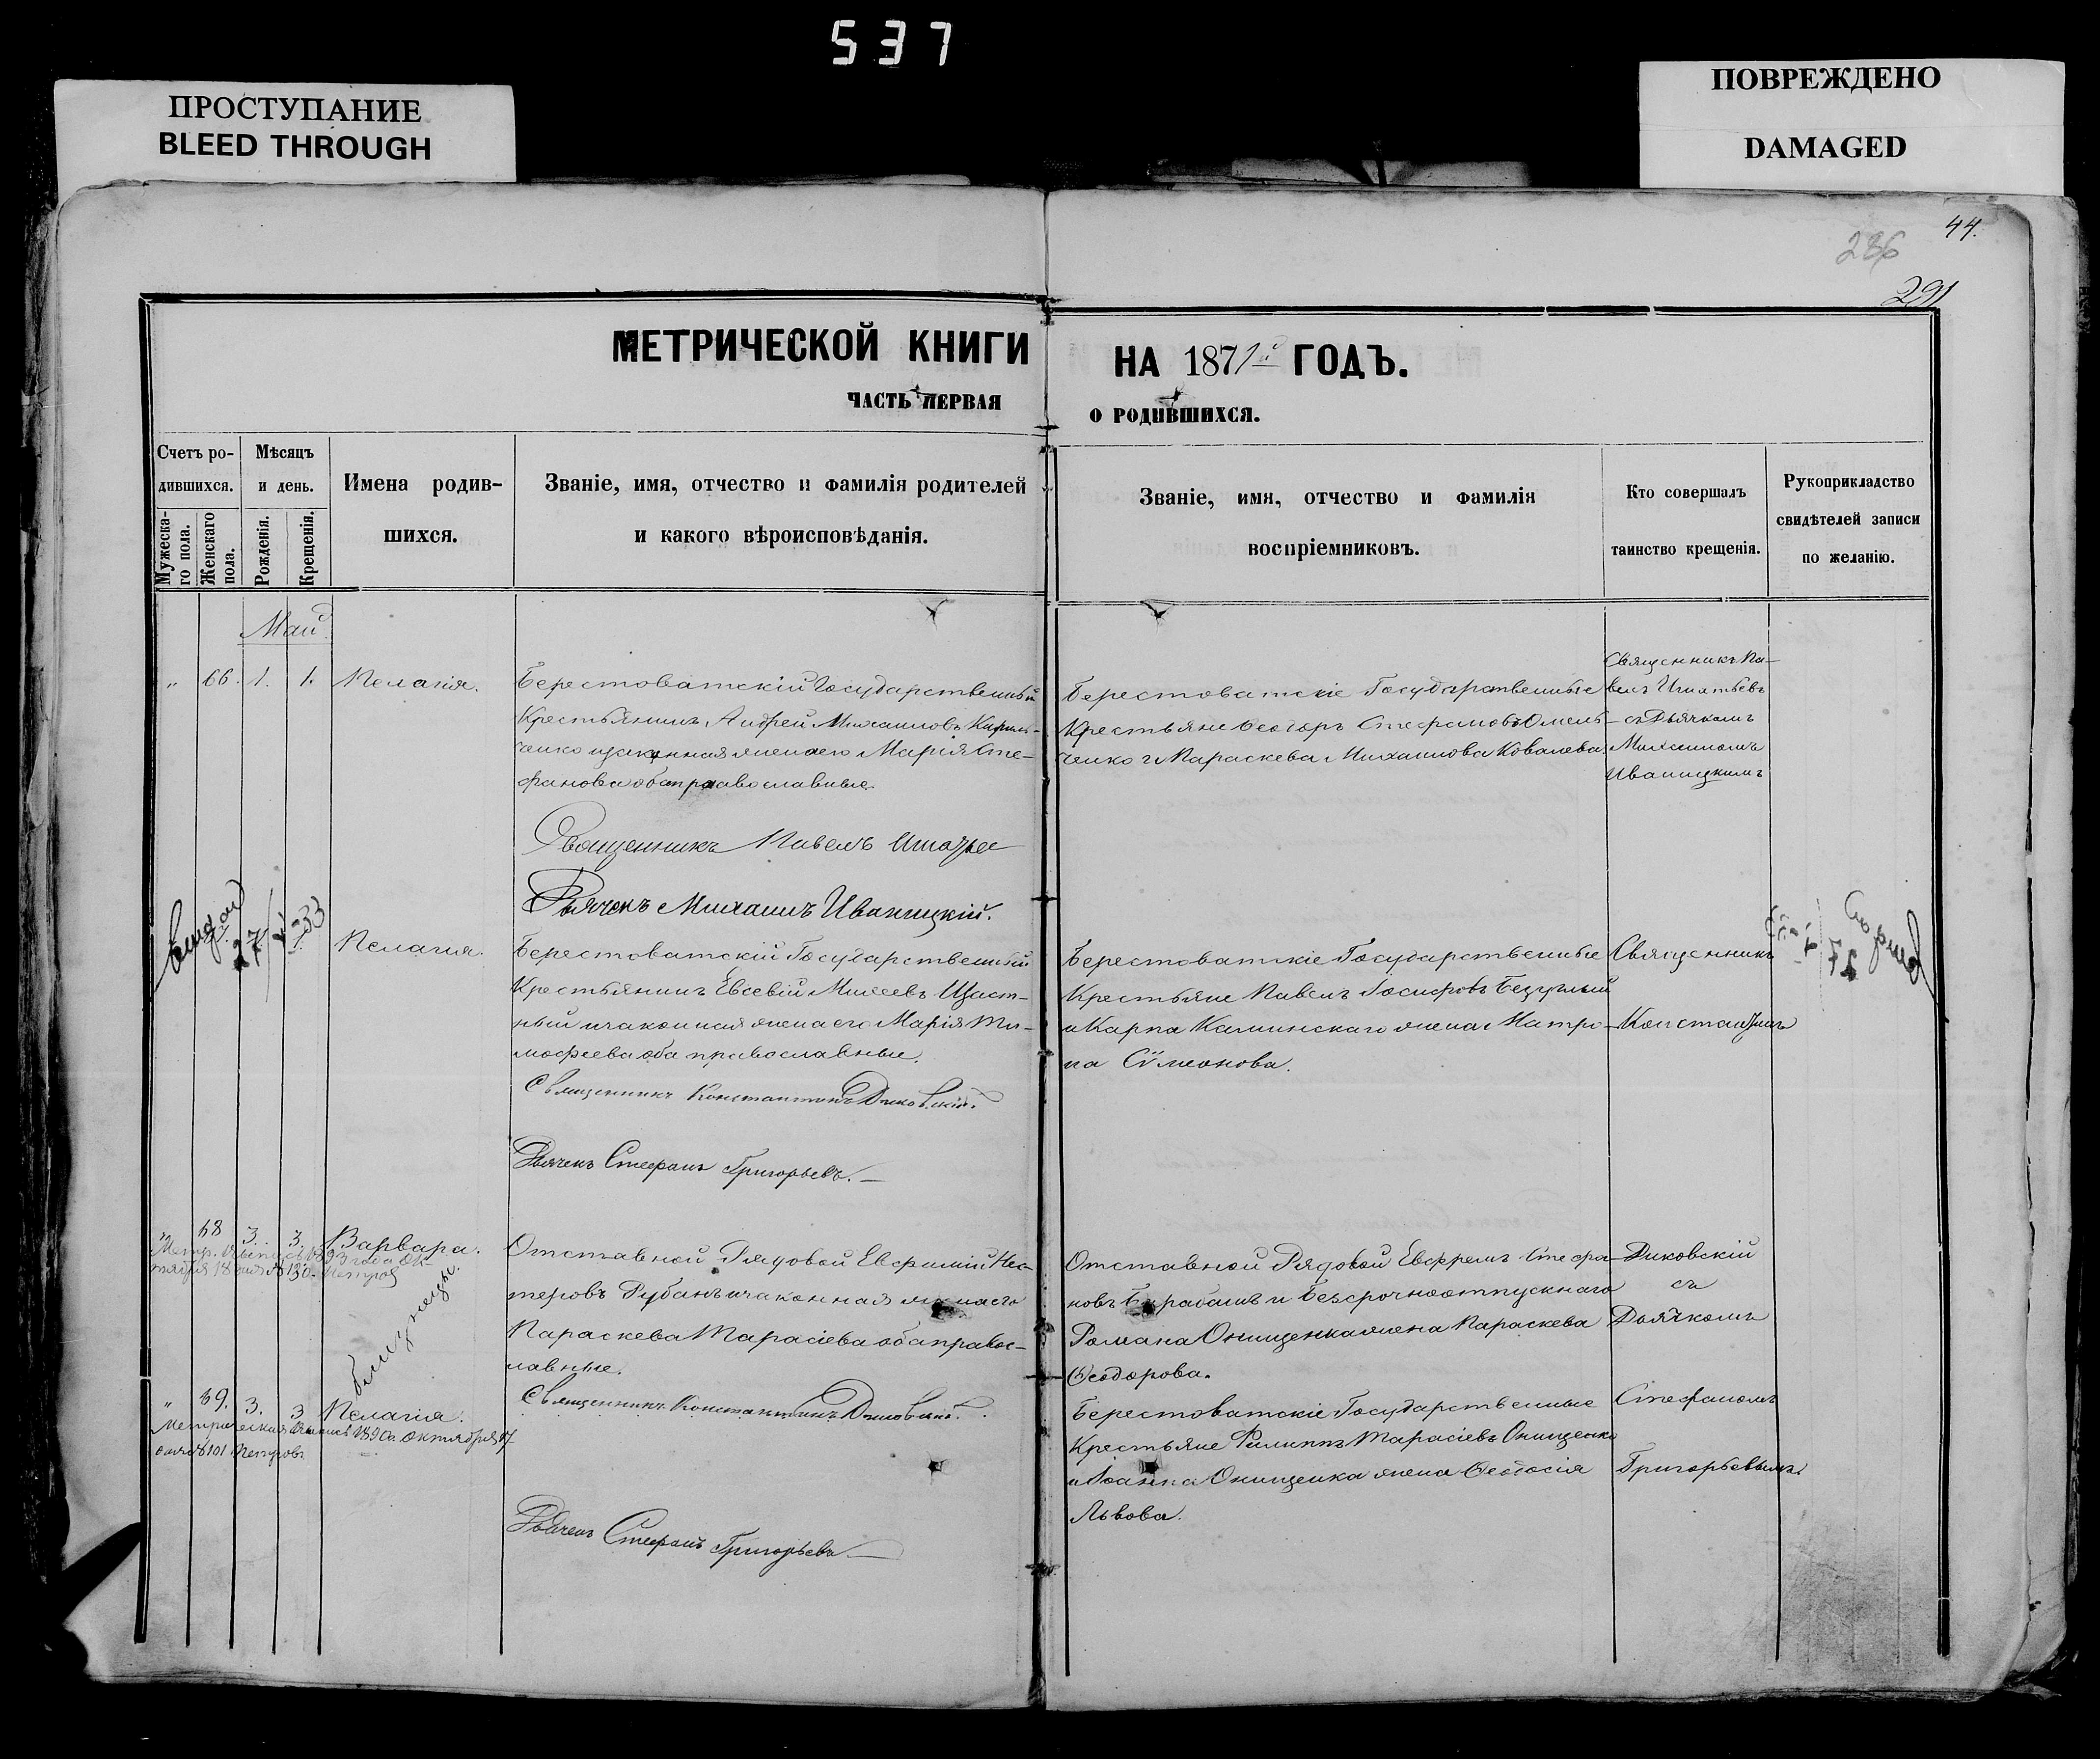 537
ПРОСТУПАНИЕ
BLEED THROUGH
ПОВРЕЖДЕНО
DAMAGED
44.
286
291
МЕТРИЧЕСКОЙ КНИГИ НА 1871й ГОДЪ.
ЧАСТЬ ПЕРВАЯ О РОДИВШИХСЯ.
Счетъ ро-
дившихся.
Мужеска-
го пола.
Женскаго
пола.
Мѣсяцъ
и день.
Рожденія.
Крещенія.
Имена родив-
шихся.
Званіе, имя, отчество и фамилія родителей
и какого вѣроисповѣданія.
Званіе, имя, отчество и фамилія
воспріемниковъ.
Кто совершалъ
таинство крещенія.
Рукоприкладство
свидѣтелей записи
по желанію.
Май
" 66. 1. 1. Пелагія.
Берестоватскій Государственный
Крестьянинъ Андрей Михаиловъ Кирил-
ченко и законная жена его Марія Сте-
фанова оба православные.
Священникъ Павелъ
Дьячекъ Михаилъ Иваницкій.
Берестоватскіе Государственные
Крестьяне Ѳеодоръ Стефановъ Омель-
ченко и Параскева Михаилова Ковалева
Священникъ Па-
велъ Игнатьевъ
съ Дьячкомъ
Михаиломъ
Иваницкимъ
Пелагія.
Берестоватскій Государственный
Крестьянинъ Евсевій Щаст-
ный и законная жена его Марія Ти-
мофеева оба православные.
Священникъ Константинъ Диковскій.
Дьячекъ Стефанъ Григорьевъ.
Берестоватскіе Государственные
Крестьяне Павелъ Іосифовъ
и Карпа Каминскаго жена Матро-
на Сѵмеонова.
Священникъ
Константинъ
" 68 3. 3. Варвара.
близнецы.
Отставной Рядовой Евфимій Нес-
теровъ Рубанъ и законная жена его
Параскева Тарасіева оба правос-
лавные.
Священникъ Константинъ Диковскій.
Отставной Рядовой Ефремъ Стефа-
новъ и безсрочноотпускнаго
Романа Онищенка жена Параскева
Ѳеодорова.
Диковскій
съ
Дьячкомъ
" 69. 3. 3 Пелагія.
Дьячекъ Стефанъ Григорьевъ
Берестоватскіе Государственные
Крестьяне Филиппъ Тарасіевъ Онищенко
и Іоанна Онищенка жена Ѳеодосія
Львова.
Стефаномъ
Григорьевымъ.